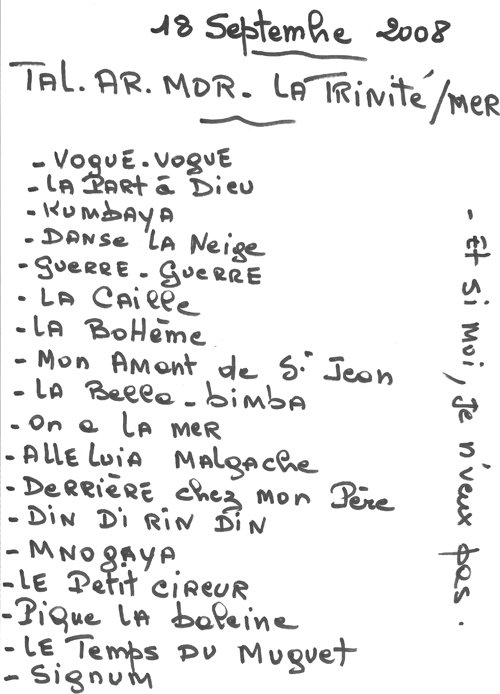 18 Septembre 2008
TAL. AR. MOR. LA TRiNité/MER
- VOGUE.VOGUE
- LA PART à Dieu
- KUMBAYA
- DANSe LA Neige
- GUERRE - GUERRE
- LA CAille
- LA BOHême
- MON AMANT de St Jean
- LA Bella - bimbA
- On a LA MER
- ALLELUIA MALgAche
- DERRIÈRE chez mon Père
- DiN Di RiN DiN
- MNOGAYA
- LE Petit CiREUR
- Pique LA baleine
- LE Temps DU Muguet
- SignuM
- Et si Moi, Je n'veux pas.